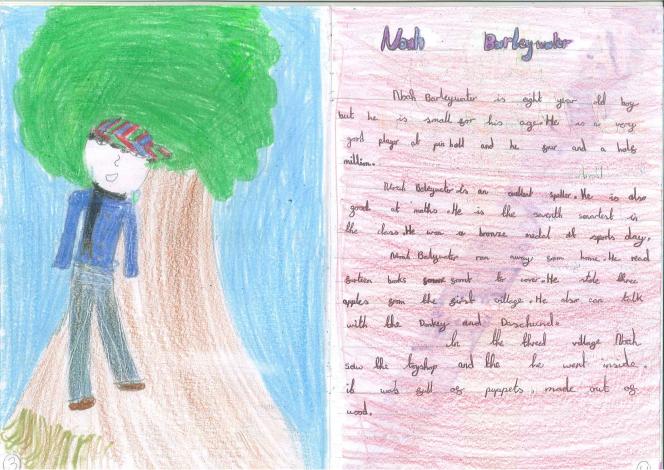 Noah Barleywater
Noah Barleywater is eight year old boy
but he is small for his age. He is a very
good player at pin ball and he four and a half
million.
Noah Barleywater is an excellent speller. He is also
good at maths. He is the seventh smartest in
the class. He won a bronze medal at sports day.
Noah Barleywater ran away from home. He read
fourteen books front to cover. He stole three
apples from the first village. He also can talk
with the Donkey and Daschund.
In the third village Noah
saw the toyshop and the he went inside.
it was full of puppets, made out of
wood.
3